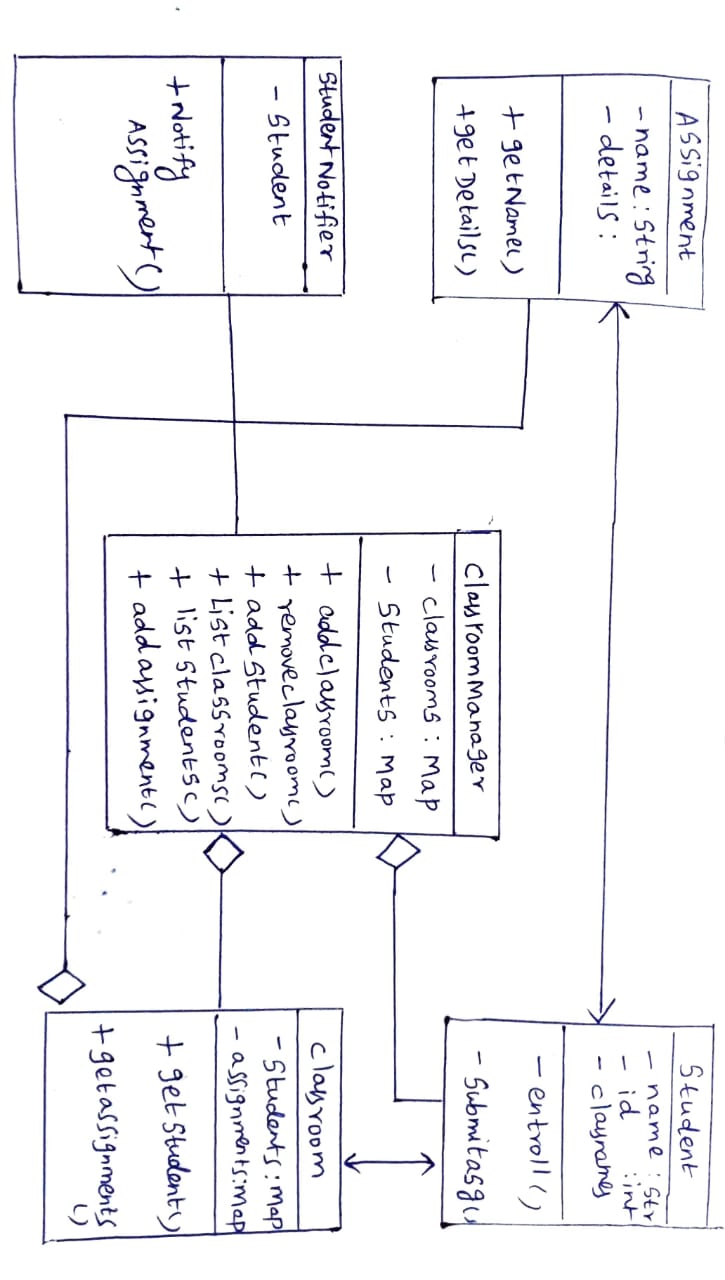 Assignment
- name : String
- details :
+ getName()
+ getDetails()
Student
- name : Str
- id : int
- classnames
- entroll()
- Submitasg()
ClassroomManager
- classrooms : Map
- Students : Map
+ addclassroom()
+ removeclassroom()
+ add Student()
+ List classrooms()
+ list Students()
+ add assignment()
Student Notifier
- Student
+ Notify
Assignment()
classroom
- Students : Map
- assignments : Map
+ get Student()
+ getassignments
()